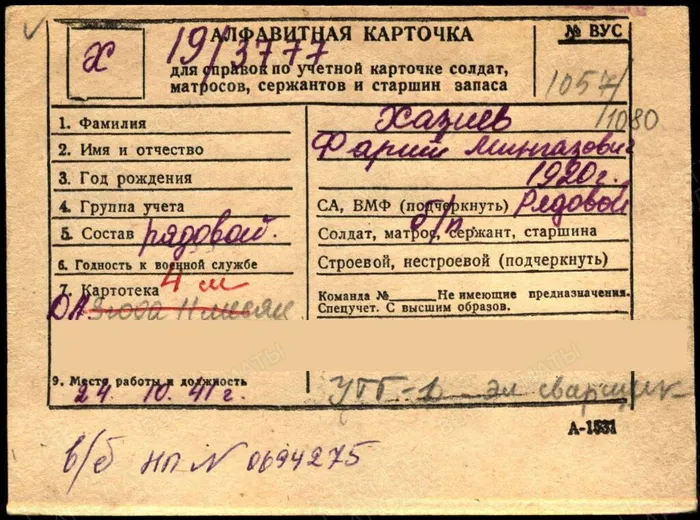 АЛФАВИТНАЯ КАРТОЧКА
№ ВУС
Х
19/3777
для справок по учетной карточке солдат,
матросов, сержантов и старшин запаса
1057/
/1080
1. Фамилия
Хазиев
2. Имя и отчество
Фарит Мингазович
3. Год рождения
1920г.
4. Группа учета
СА, ВМФ (подчеркнуть) Рядовой
5. Состав рядовой.
б/п
Солдат, матрос, сержант, старшина
6. Годность к военной службе
Строевой, нестроевой (подчеркнуть)
7. Картотека 4 м
Команда №____ Не имеющие предназначения.
Спецучет. С высшим образов.
ОА 3 года 11 месяц
9. Место работы и должность
24. 10. 41 г.
УТТ-1 эл сварщик
А-1531
в/б НП № 0694275